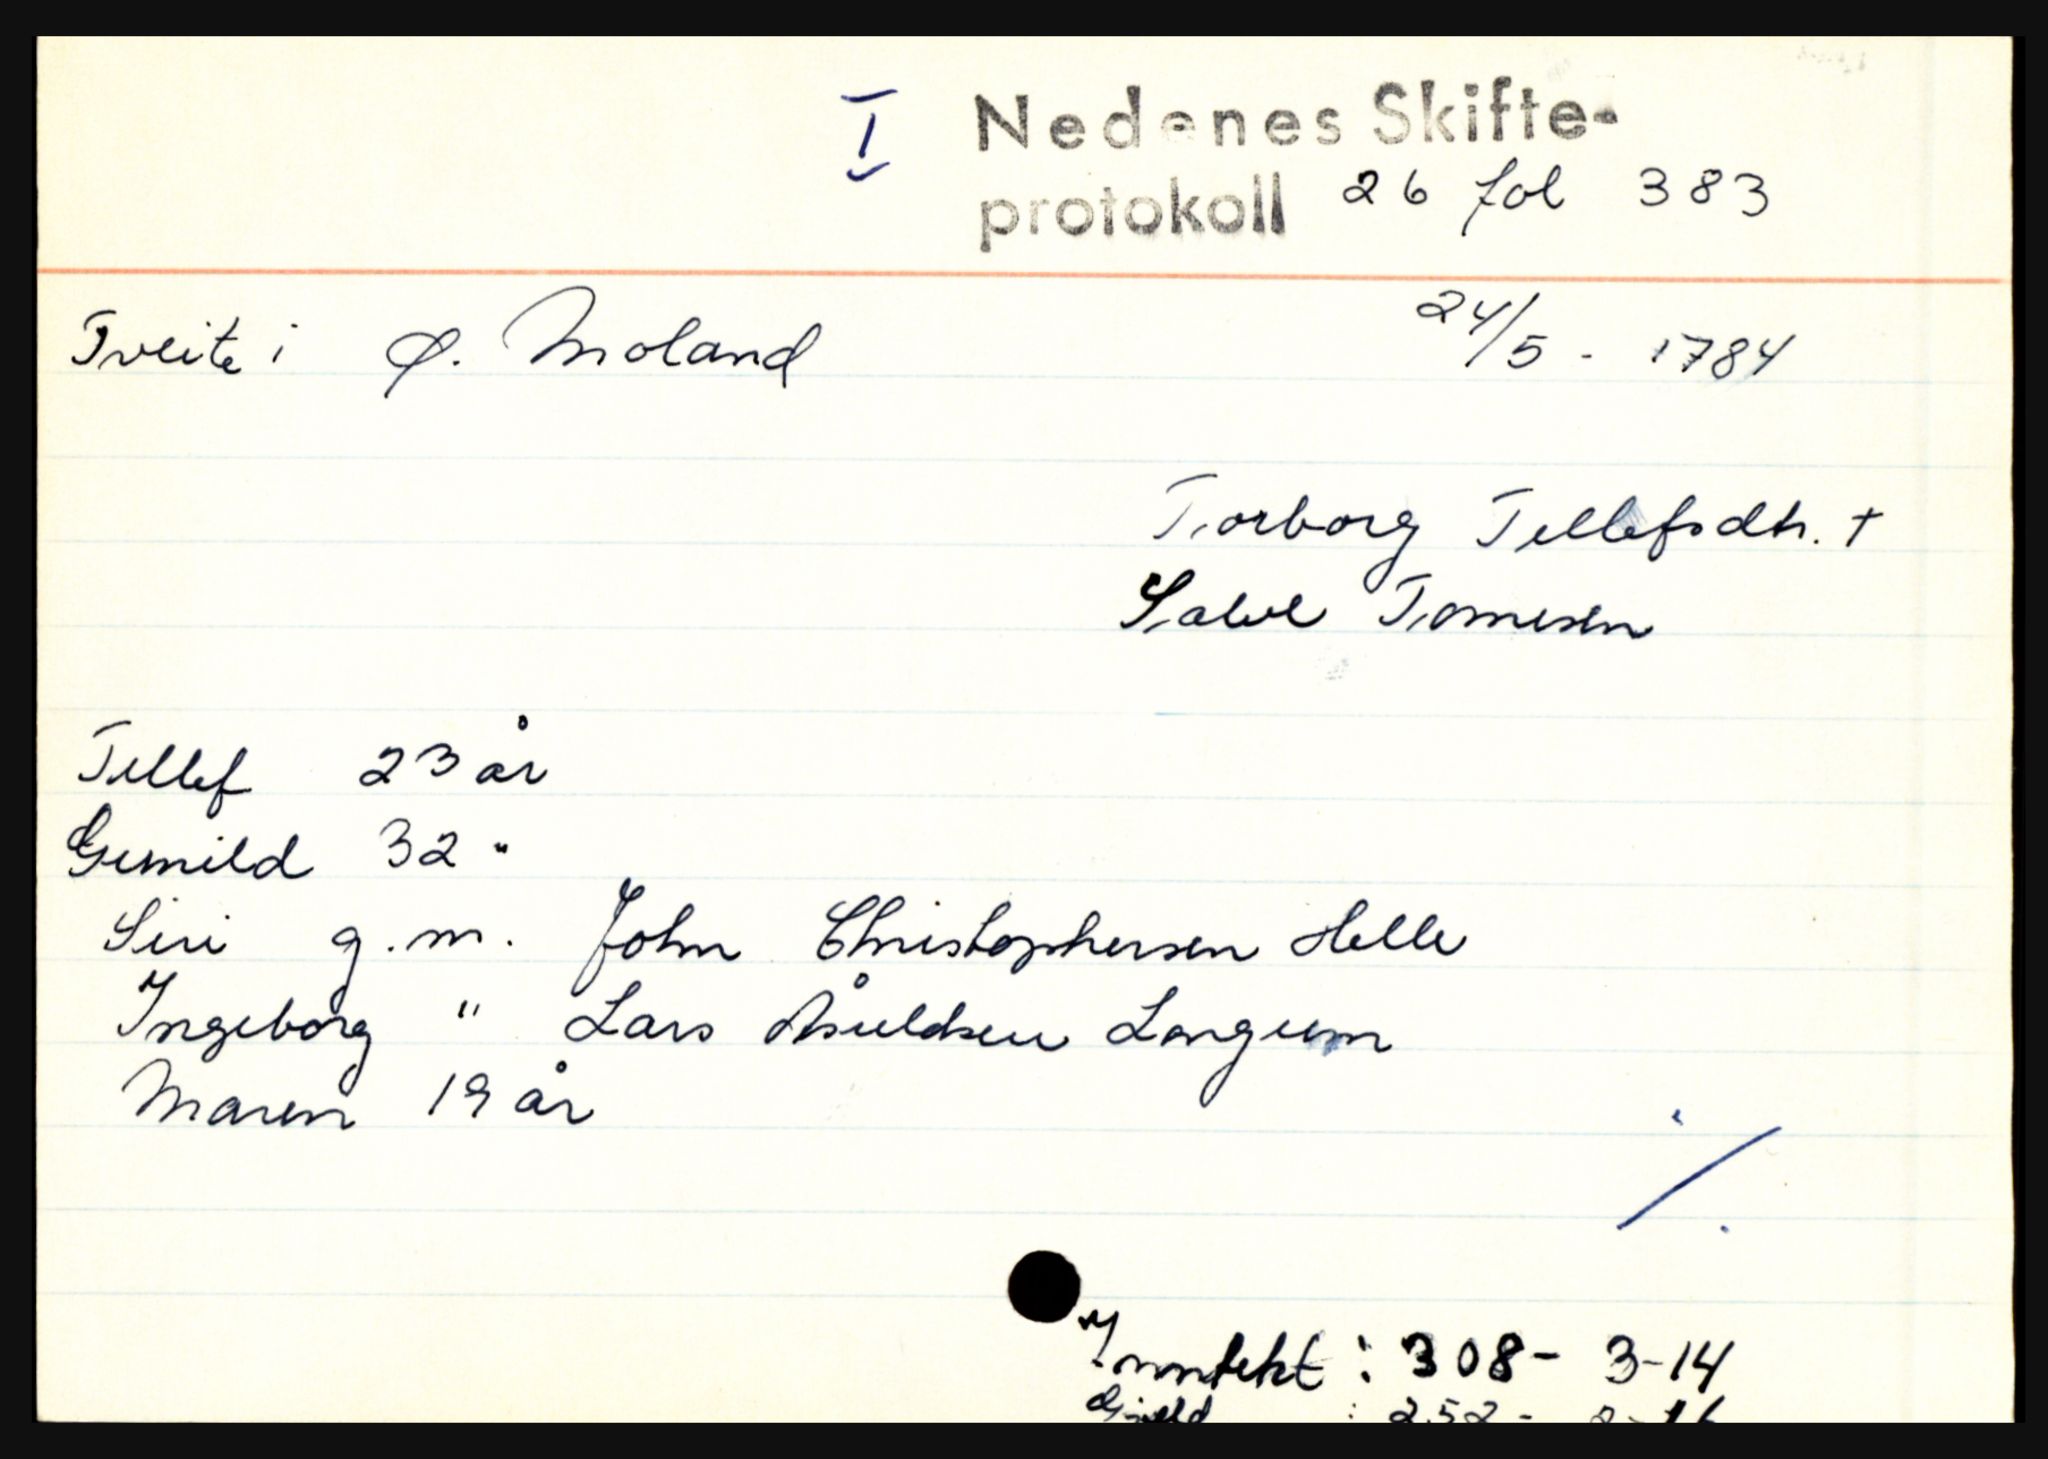 I Nedenes Skifte-
protokoll 26 fol 383
Tveite i Ø. Moland 24/5 - 1784
Torborg Tellefsdtr. +
Salve Tomesen
Tellef 23 år
Gunild 32 "
Siri g.m. John Christophersen Helle
Ingeborg " Lars Åsuldsen Longum
Maren 19 år
Inntekt : 308 - 3-14
Gjeld : 252 - 2-16